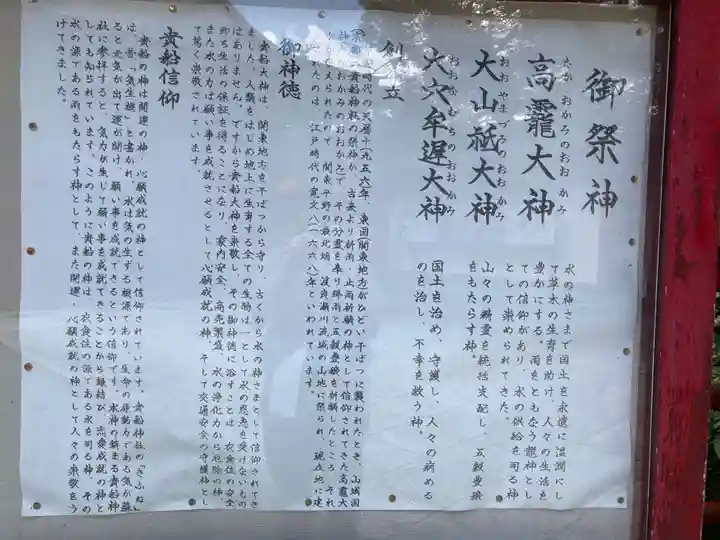 御祭神
たか おかみのおおかみ
高龗大神
水の神さまで国土を永遠に湿潤にし
て草木の生育を助け、人々の生活を
豊かにする。雨をともなう龍神とし
ての信仰があり、水の供給を司る神
として崇められてきた。
おおやまづみのおおかみ
大山祇大神
山々の精霊を統括支配し、五穀豊穣
をもたらす神。
おおなむちのおおかみ
大穴牟遅大神
国土を治め、守護し、人々の病める
のを治し、不幸を救う神。
創立
時代の天暦十(九五六)年、東国(関東地方)がひどい干ばつに襲われたとき、山城国
(京都)貴船神社の祭神か、古来より祈雨、止雨祈願の神として信仰されてきた高龗大
神(たかおかみのおおかみ)で、その分霊を奉り降雨と五穀豊穣を祈願したところ、それ
がかなえられたので、関東平野の最北端、渡良瀬川流域の山地に祭られ、現在地に建
られたのは、江戸時代の寛文八(一六六八)年といわれています。
御神徳
貴船大神は、関東地方を干ばつから守り、古くから水の神さまとして信仰されてき
ました。人類をはじめ地上に生育する全ての生物は一として水の恩恵を受けないもの
はありません。ですから貴船大神を崇敬し、その御神徳に浴すことは、衣食住の安全
即ち生活の保証を得ることになり、家内安全、商売繁盛、水の浄化力から厄除の神、
また水の力は願い事を成就させるとして心願成就の神、そして交通安全の守護神とし
て篤く崇敬されています。
貴船信仰
貴船の神は開運の神、心願成就の神として信仰されています。貴船神社の「きふね」
は、昔、「気生根」と書かれ、水は気の生ずる根源であり、生命の原動力である気が蘇
ると元気が出て運が開け、願い事を成就できるという信仰です。水神の鎮まる貴船神
社に参拝すると、気力が生じて願い事を成就できることから縁結び、恋愛成就の神と
しても知られています。このように貴船の神は、衣食住の源である水を司る神、その
水の源である雨をもたらす神として、また開運、心願成就の神として人々の崇敬をう
けてきました。